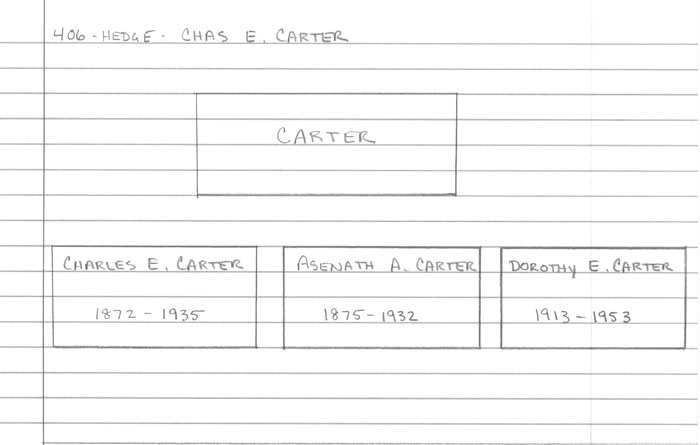 406 - HEDGE - CHAS E. CARTER
CARTER
CHARLES E. CARTER
1872 - 1935
ASENATH A. CARTER
1875 - 1932
DOROTHY E. CARTER
1913 - 1953